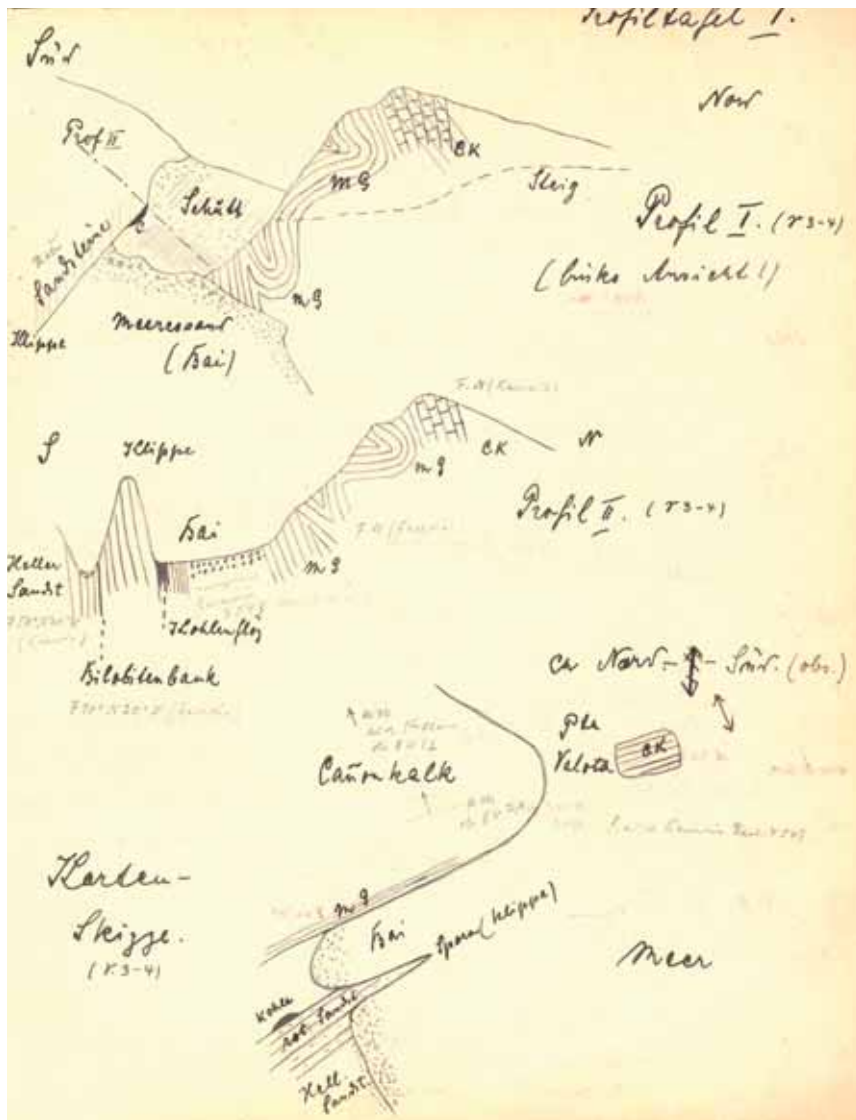 Profiltafel I.
Süd
Nord
Prof II
CK
mG
Schutt
Steig
Profil I. (V 3-4)
(linke Ansicht!)
rote
Sandsteine
mG
Klippe
Meeressand
(Bai)
S
Klippe
CK
N
mG
Profil II. (V 3-4)
Bai
Heller
Sandst
mG
Kohlenflöz
Bilobitenbank
Ca Nord - Süd. (obs.)
Pta
Velota
CK
Cañonkalk
Karten-
Skizze.
(V. 3-4)
mG
Bai
(Klippe)
Meer
Kohle
rot. Sandst
Hell.
Sandst.